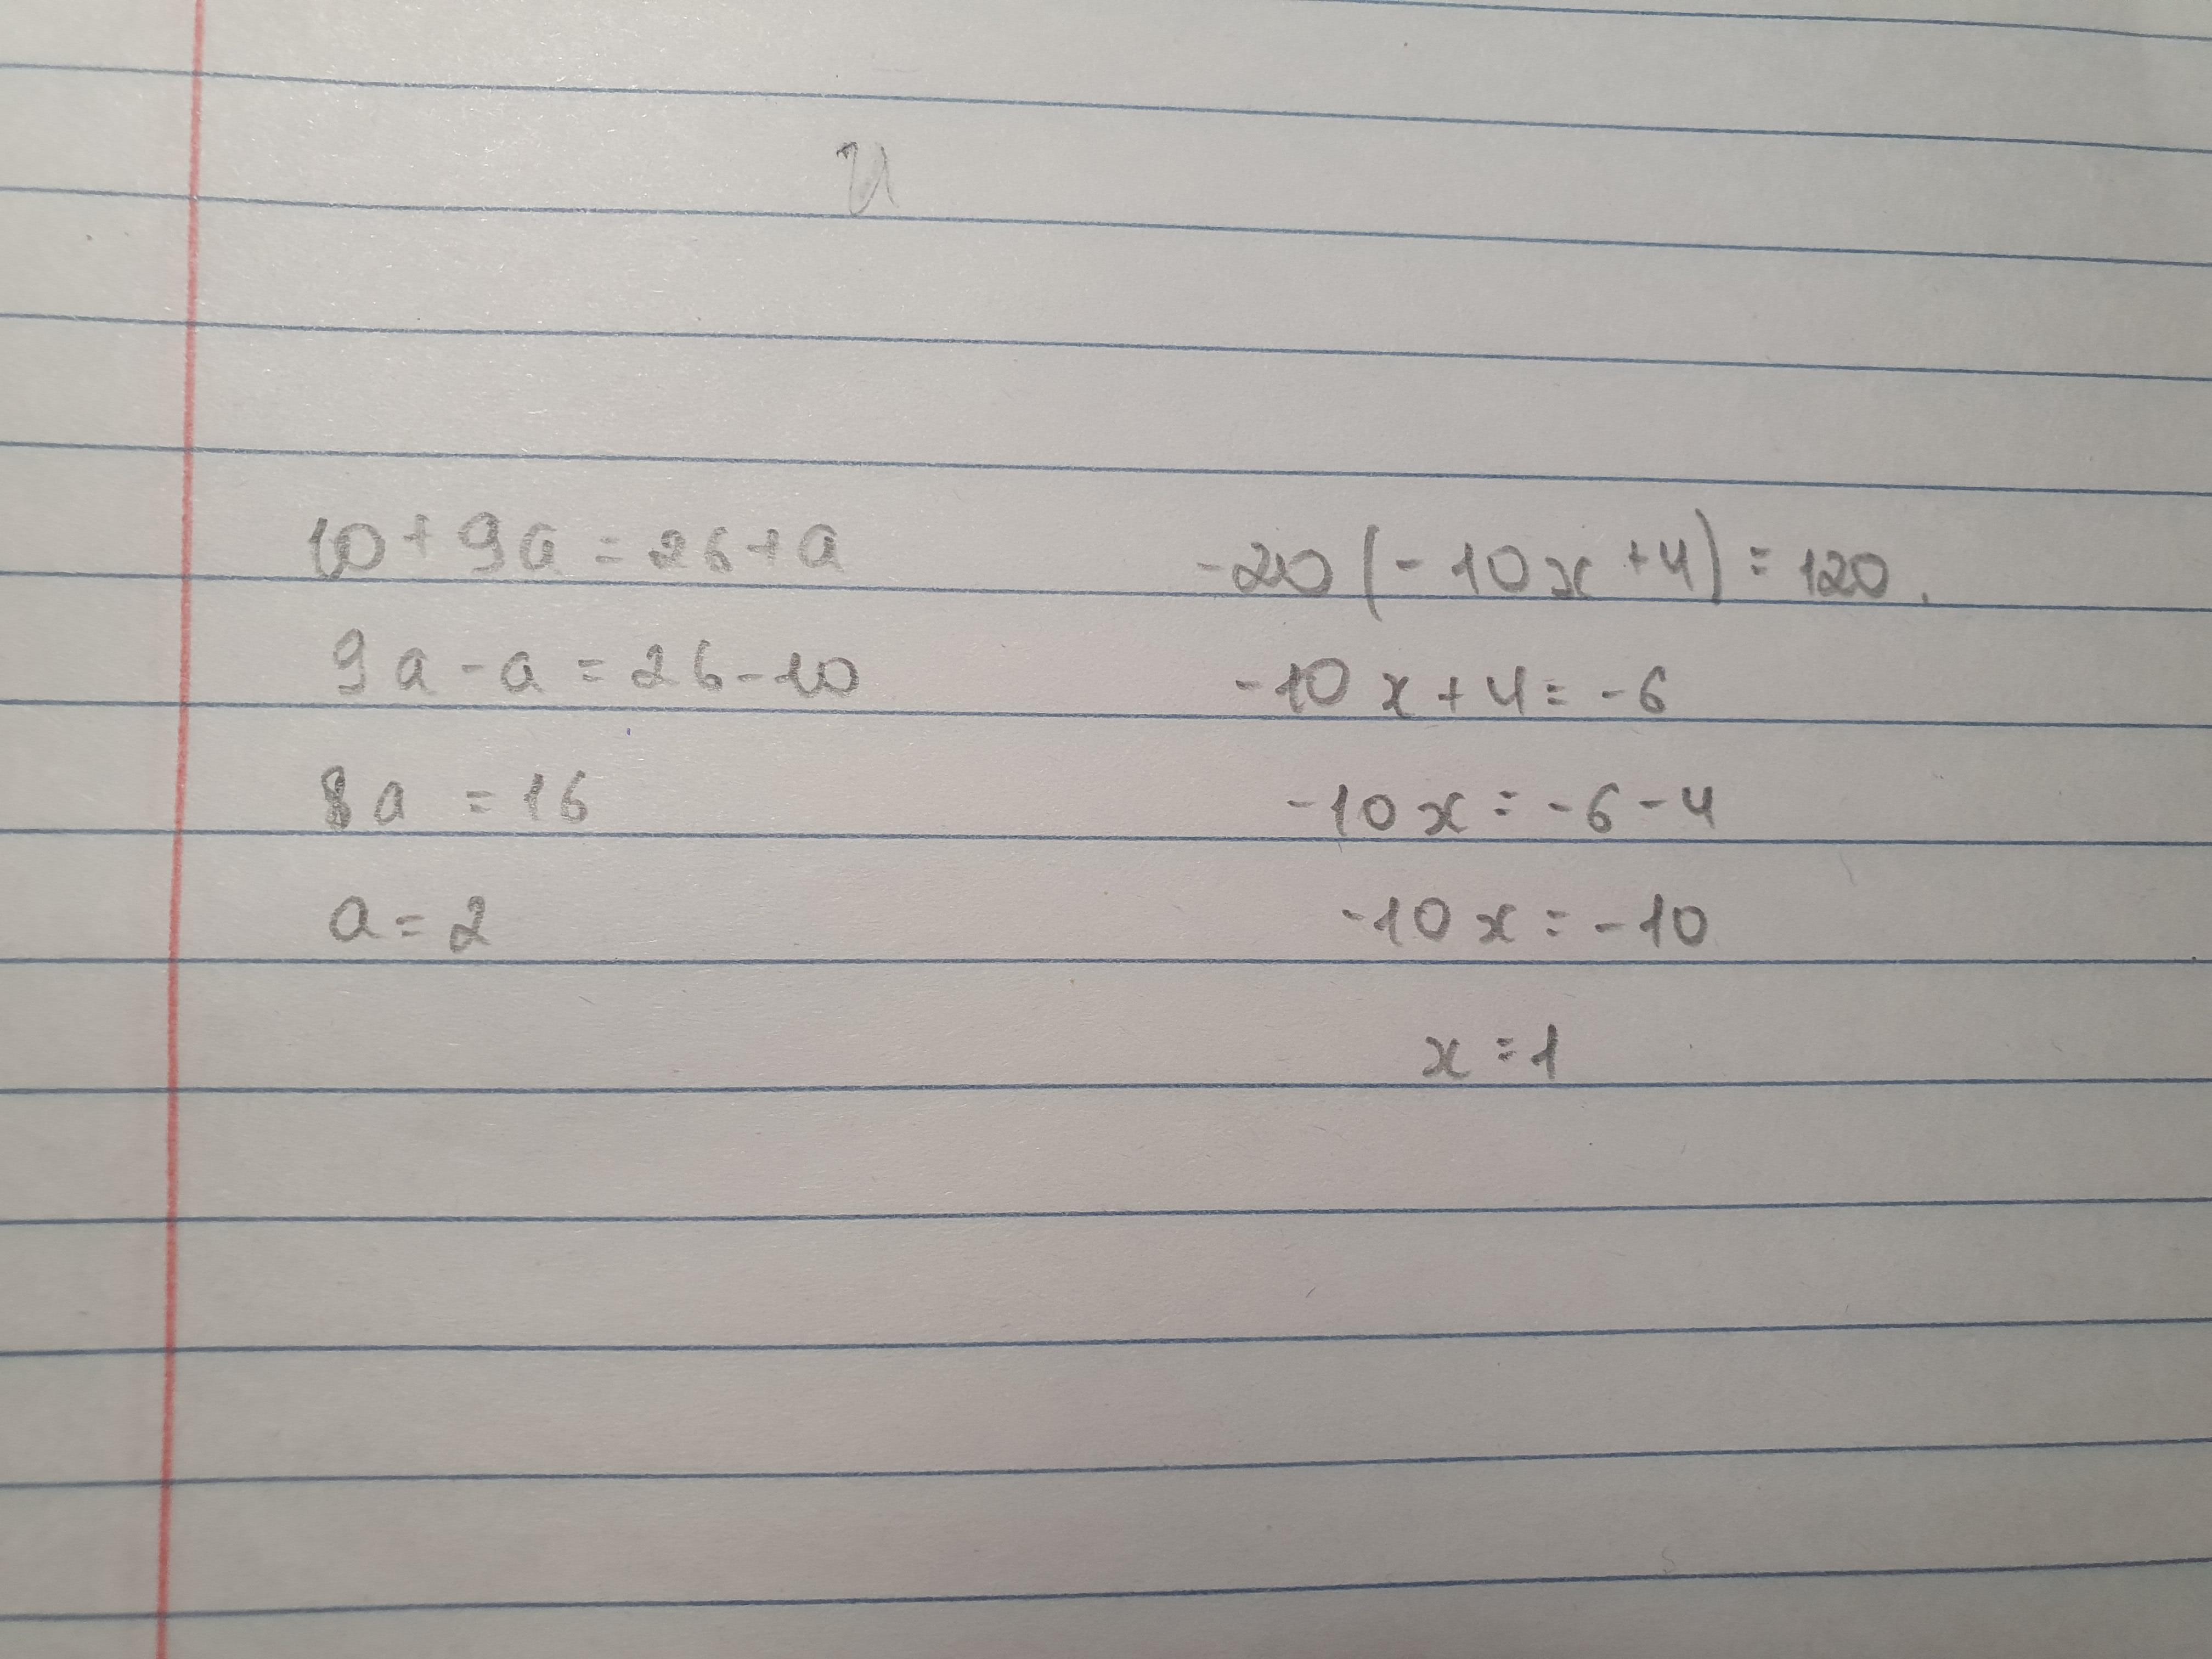 10 + 9a = 26 + a
9a - a = 26 - 10
8a = 16
a = 2
-20 (-10x + 4) = 120.
-10x + 4 = -6
-10x = -6 - 4
-10x = -10
x = 1